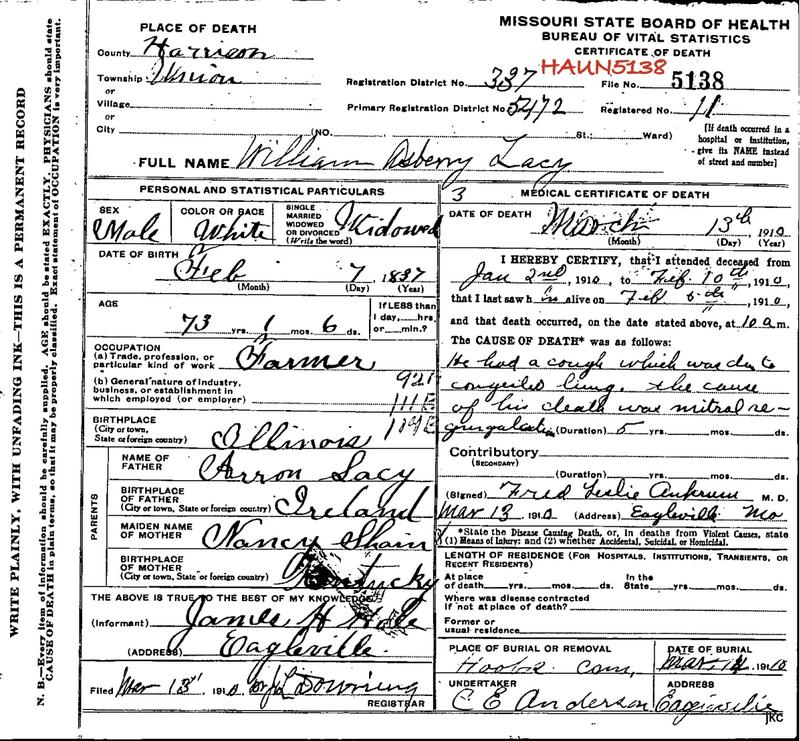 WRITE PLAINLY, WITH UNFADING INK—THIS IS A PERMANENT RECORD
N. B.—Every item of information should be carefully supplied. AGE should be stated EXACTLY. PHYSICIANS should state
CAUSE OF DEATH in plain terms, so that it may be properly classified. Exact statement of OCCUPATION is very important.
MISSOURI STATE BOARD OF HEALTH
BUREAU OF VITAL STATISTICS
CERTIFICATE OF DEATH
PLACE OF DEATH
County Harrison
Township Union
or
Village
or
City (NO. St.; Ward)
HAUN5138
Registration District No. 337 File No. 5138
Primary Registration District No. 5472 Registered No. 11
[If death occurred in a
hospital or institution,
give its NAME instead
of street and number]
FULL NAME William Asberry Lacy
PERSONAL AND STATISTICAL PARTICULARS
SEX
Male
COLOR OR RACE
White
SINGLE
MARRIED
WIDOWED
OR DIVORCED
(Write the word)
Widowed
DATE OF BIRTH
Feb 7 1837
(Month) (Day) (Year)
AGE
73 yrs. 1 mos. 6 ds.
If LESS than
1 day, hrs.
or min.?
OCCUPATION
(a) Trade, profession, or
particular kind of work Farmer
(b) General nature of industry,
business, or establishment in
which employed (or employer)
92
111B
BIRTHPLACE
(City or town,
State or foreign country) Illinois
PARENTS
NAME OF
FATHER Arron Lacy
BIRTHPLACE
OF FATHER
(City or town, State or foreign country) Ireland
MAIDEN NAME
OF MOTHER Nancy Shain
BIRTHPLACE
OF MOTHER
(City or town, State or foreign country) Kentucky
THE ABOVE IS TRUE TO THE BEST OF MY KNOWLEDGE
(Informant) James H Hole
(ADDRESS) Eagleville
Filed Mar 13" 1910 Dr J L Downing
REGISTRAR
3 MEDICAL CERTIFICATE OF DEATH
DATE OF DEATH March 13th 1910
(Month) (Day) (Year)
I HEREBY CERTIFY, that I attended deceased from
Jan 2nd, 1910, to Feb. 10th, 1910,
that I last saw h im alive on Feb 6th, 1910,
and that death occurred, on the date stated above, at 10 a m.
The CAUSE OF DEATH* was as follows:
He had a cough which was du to
congested lung. The cause
of his death was mitral re-
gurgatation (Duration) 5 yrs. mos. ds.
Contributory
(SECONDARY)
(Duration) yrs. mos. ds.
(Signed) Fred Leslie Ankrum M. D.
Mar 13 1910 (Address) Eagleville Mo
*State the Disease Causing Death, or, in deaths from Violent Causes, state
(1) Means of Injury; and (2) whether Accidental, Suicidal, or Homicidal.
LENGTH OF RESIDENCE (FOR HOSPITALS, INSTITUTIONS, TRANSIENTS, OR
RECENT RESIDENTS)
At place
of death yrs. mos. ds.
In the
State yrs. mos. ds.
Where was disease contracted
if not at place of death?
Former or
usual residence
PLACE OF BURIAL OR REMOVAL
Cem,
DATE OF BURIAL
Mar 14 1910
UNDERTAKER
C E Anderson
ADDRESS
Eagleville
JKC